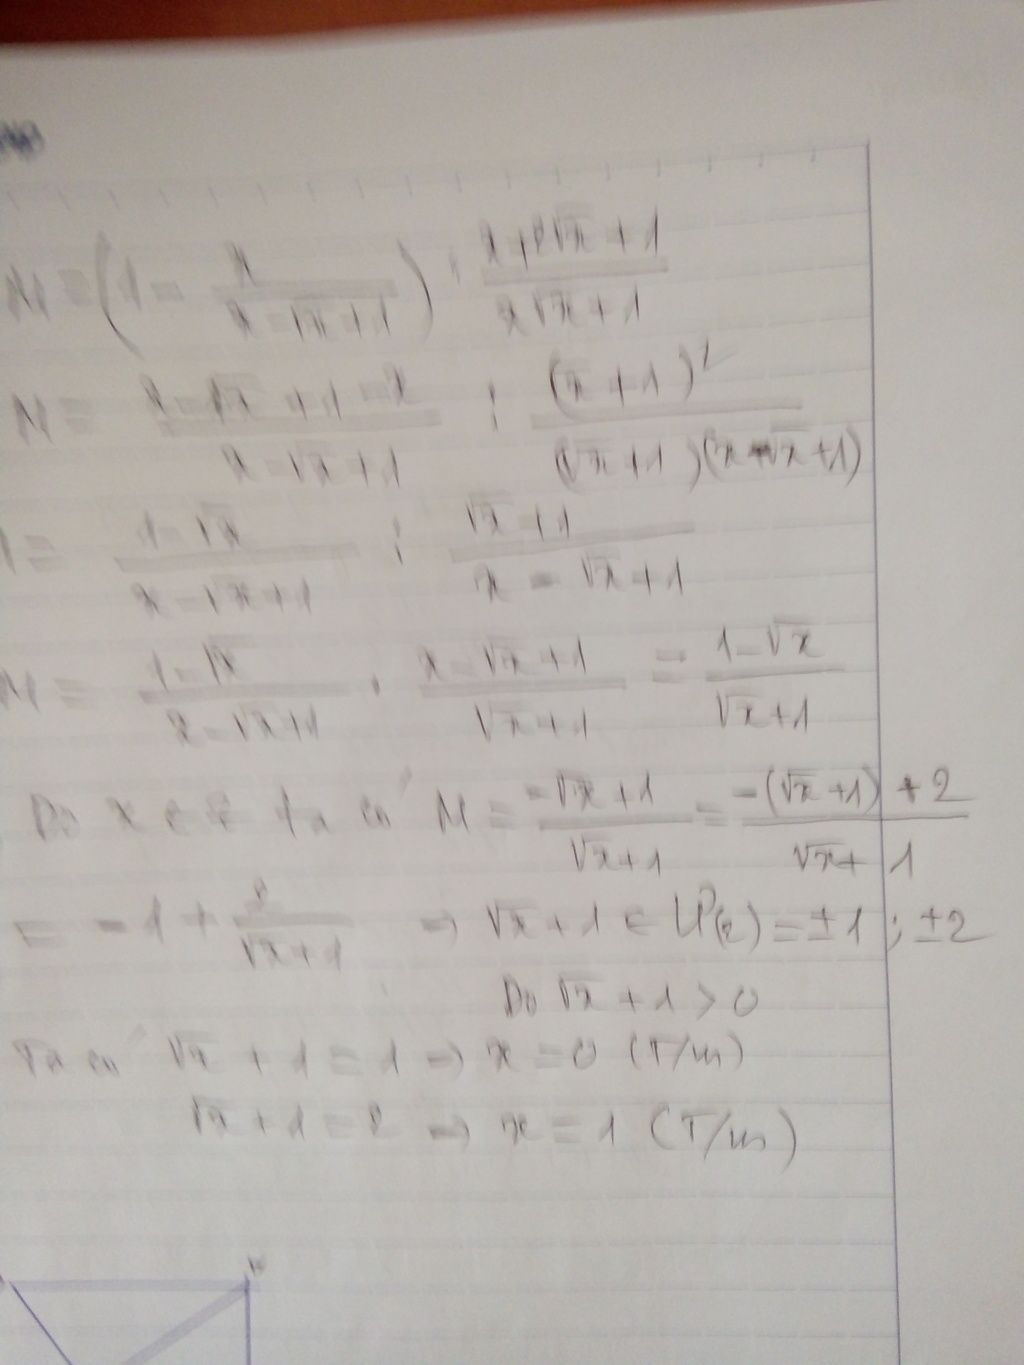 M = (1 - x/(x - √x + 1)) : (x + 2√x + 1)/(x√x + 1)
M = (x - √x + 1 - x)/(x - √x + 1) : (√x + 1)²/((√x + 1)(x - √x + 1))
= (1 - √x)/(x - √x + 1) : (√x + 1)/(x - √x + 1)
M = (1 - √x)/(x - √x + 1) . (x - √x + 1)/(√x + 1) = (1 - √x)/(√x + 1)
Do x ∈ Z ta có M = (-√x + 1)/(√x + 1) = (-(√x + 1) + 2)/(√x + 1)
= -1 + 2/(√x + 1) => √x + 1 ∈ Ư(2) = ±1 ; ±2
Do √x + 1 > 0
Ta có √x + 1 = 1 => x = 0 (T/m)
√x + 1 = 2 => x = 1 (T/m)